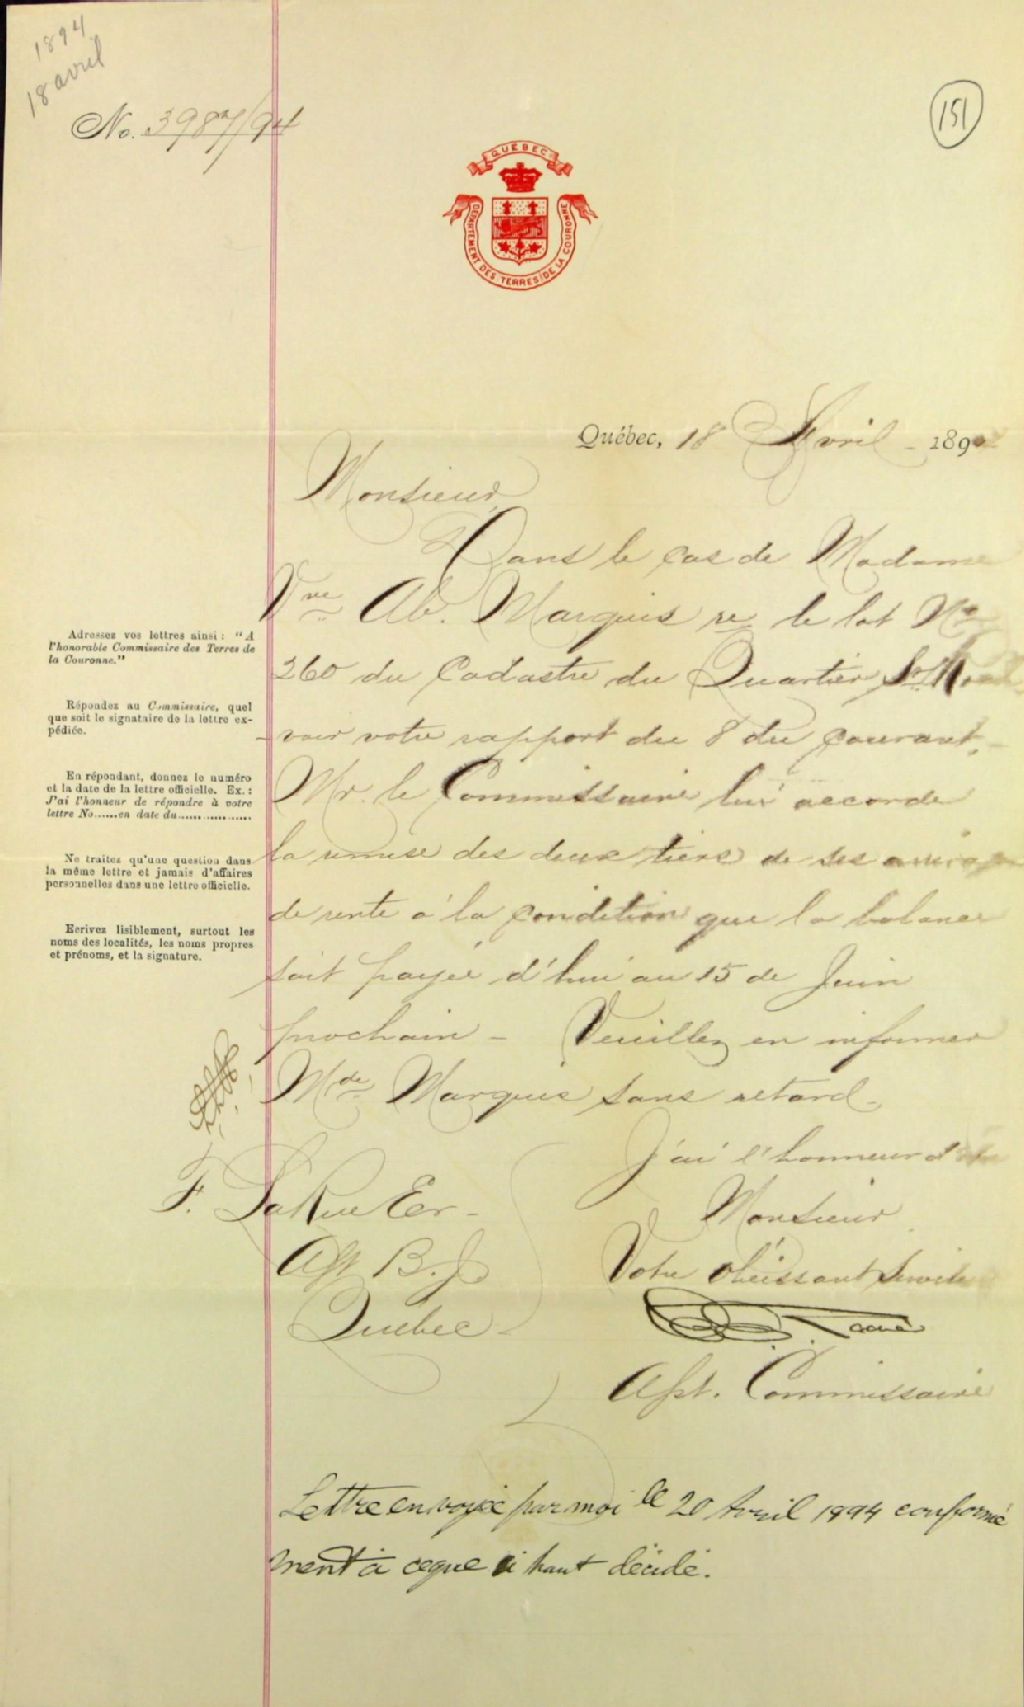 1894
18 avril
No. 3987/94
151
QUÉBEC
DÉPARTEMENT DES TERRES DE LA COURONNE
Québec, 18 Avril 189
Monsieur,
Dans le cas de Madame
Vve Ab. Marquis re le lot No
260 du Cadastre du Quartier St
voir votre rapport du 8 du courant,
Mr. le Commissaire lui accorde
la remise des deux tiers de ses
de rente à la condition que la balance
soit payée d'hui au 15 de Juin
prochain - Veuillez en informer
Mde Marquis sans retard.
J'ai l'honneur d'être
Monsieur
Votre obéissant
Asst. Commissaire
F. LaRue Ecr.
Agt B. J.
Québec
Adressez vos lettres ainsi : "A
l'honorable Commissaire des Terres de
la Couronne."
Répondez au Commissaire, quel
que soit le signataire de la lettre ex-
pédiée.
En répondant, donnez le numéro
et la date de la lettre officielle. Ex.:
J'ai l'honneur de répondre à votre
lettre No......en date du..................
Ne traitez qu'une question dans
la même lettre et jamais d'affaires
personnelles dans une lettre officielle.
Ecrivez lisiblement, surtout les
noms des localités, les noms propres
et prénoms, et la signature.
Lettre envoyée par moi le 20 Avril 1894 conformé
ment à ce que ci haut décidé.